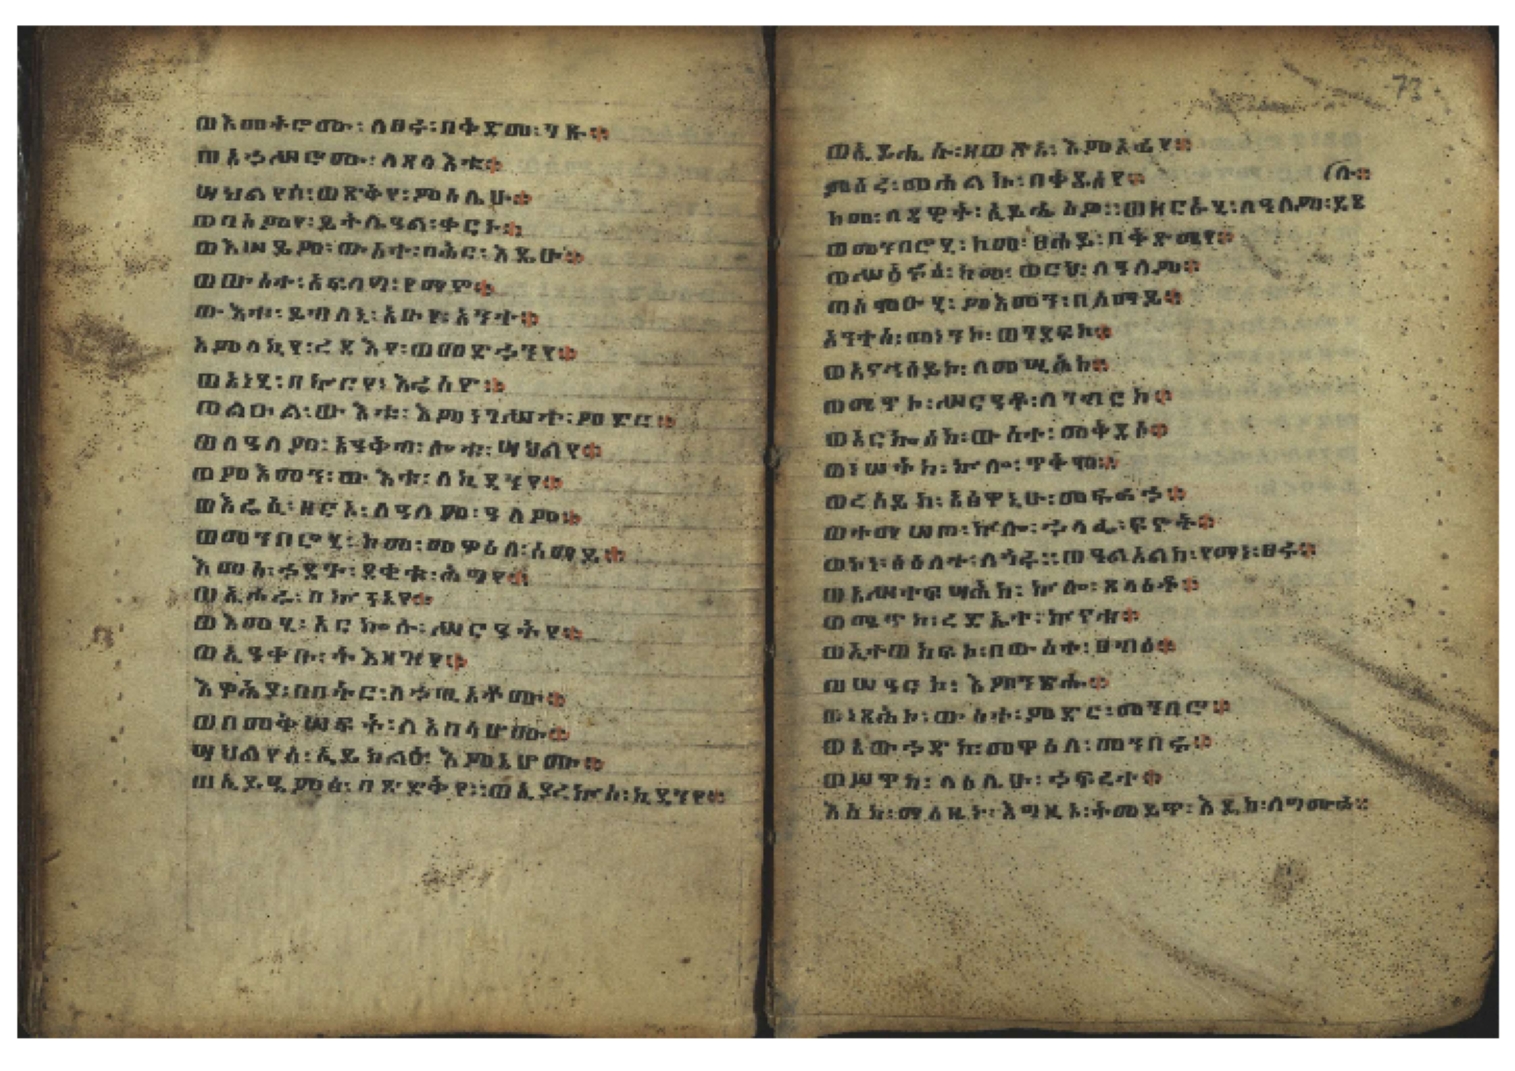 ወእመትሮሙ፡ለፀሩ፡በቅድመ፡ገጹ።
ወአኀሥሮሙ፡ለጸላእቱ።
ሣህልየሰ፡ወጽድቅየ፡ምስሌሁ።
ወበስምየ፡ይትሌዓል፡ቀርኑ።
ወእሠይም፡ውስተ፡ባሕር፡እዴሁ።
ወውስተ፡አፍላግ፡የማኖ።
ውእቱ፡ይብለኒ፡አቡየ፡አንተ።
አምላኪየ፡ረዳእየ፡ወመድኀንየ።
ወአነሂ፡በኵርየ፡እሬስዮ።
ወልዑል፡ውእቱ፡እምነገሥተ፡ምድር።
ወለዓለም፡አዓቅብ፡ሎቱ፡ሣህልየ።
ወምእመን፡ውእቱ፡ለኪዳንየ።
ወእሬሲ፡ዘርኦ፡ለዓለም፡ዓለም።
ወመንበሮሂ፡ከመ፡መዋዕለ፡ሰማይ።
እመሰ፡ኀደጉ፡ደቂቁ፡ሕግየ።
ወኢሖሩ፡በኵነኔየ።
ወእመሂ፡አርኰሱ፡ሥርዓትየ።
ወኢዓቀቡ፡ትእዛዝየ።
እዋሕዮ፡በበትር፡ለኀጢአቶሙ።
ወበመቅሠፍት፡ለአበሳሆሙ።
ሣህልየሰ፡ኢይከልዕ፡እምኔሆሙ።
ወኢይዔምፅ፡በጽድቅየ፡፡ወኢያረኵስ፡ኪዳንየ።
73
ወኢይሔሱ፡ዘወፅአ፡እምአፉየ።
ምዕረ፡መሐልኩ፡በቅዱስየ። (ሉ።
ከመ፡ለዳዊት፡ኢይሔስዎ፡፡ወዘርዑሂ፡ለዓለም፡ይሄ
ወመንበሮሂ፡ከመ፡ፀሐይ፡በቅድሜየ።
ከመ፡ወርኅ፡ለዓለም።
ምእመን፡በሰማይ።
አንተሰ፡መነንኮ፡ወገደፍኮ።
ለመሲሕከ።
ወሜጥከ፡ሥርዓቶ፡ለገብርከ።
ወአርኰስከ፡ውስተ፡መቅደስ።
ወነሠትከ፡ኵሎ፡ጥቅሞ።
ወረሰይከ፡አፅዋኒሁ፡
ወተማሠጦ፡ኵሎ፡ኀላፌ፡ፍኖት።
ወኮነ፡ጽዕለተ፡ለጎሩ፡፡ወዓልዓልከ፡የማነ፡ፀሩ።
ኵሎ፡ጸላዕቶ።
ወሜጥከ፡ረድኤተ፡ኵናቱ።
ወኢተወከፍኮ፡በውስተ፡ፀብዕ።
ወሠዓርከ፡እምንጽሑ።
ውስተ፡ምድር፡መንበሮ።
ወአውኀድከ፡መዋዕለ፡መንበሩ።
ወሦጥከ፡ላዕሌሁ፡ኀፍረተ።
እስከ፡ማእዜኑ፡እግዚኦ፡ትመይጥ፡እዴከ፡ለግሙራ።